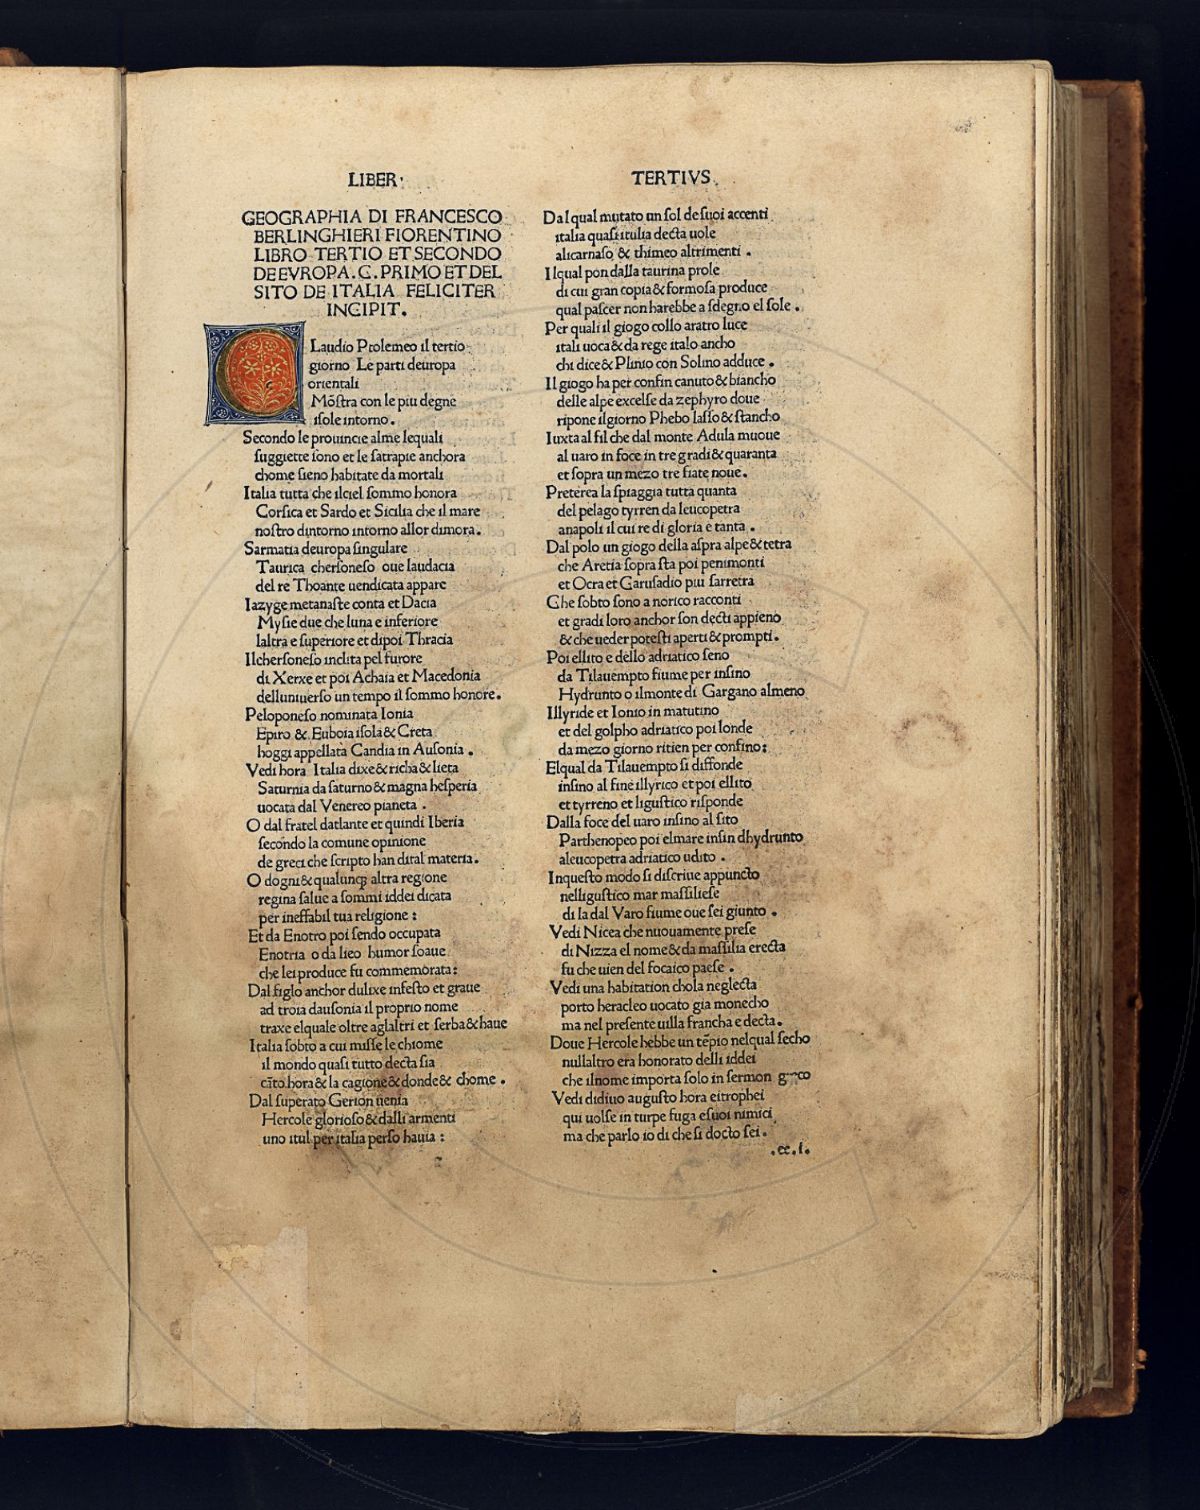 LIBER
TERTIVS
GEOGRAPHIA DI FRANCESCO
BERLINGHIERI FIORENTINO
LIBRO TERTIO ET SECONDO
DE EVROPA. C. PRIMO ET DEL
SITO DE ITALIA FELICITER
INCIPIT.
CLaudio Ptolemeo il tertio
giorno Le parti deuropa
orientali
Mõstra con le piu degne
isole intorno.
Secondo le prouincie alme lequali
suggiette sono et le satrapie anchora
chome sieno habitate da mortali
Italia tutta che ilciel sommo honora
Corsica et Sardo et Sicilia che il mare
nostro dintorno intorno allor dimora.
Sarmatia deuropa singulare
Taurica chersoneso oue laudacia
del re Thoante uendicata appare
Iazyge metanaste conta et Dacia
Mysie due che luna e inferiore
laltra e superiore et dipoi Thracia
Ilchersoneso inclita pel furore
di Xerxe et poi Achaia et Macedonia
delluniuerso un tempo il sommo honore.
Peloponeso nominata Ionia
Epiro & Euboia isola & Creta
hoggi appellata Candia in Ausonia.
Vedi hora Italia dixe & richa & lieta
Saturnia da saturno & magna hesperia
uocata dal Venereo pianeta.
O dal fratel datlante et quindi Iberia
secondo la comune opinione
de greci che scripto han dital materia.
O dogni & qualunqꝫ altra regione
regina salue a sommi iddei dicata
per ineffabil tua religione:
Et da Enotro poi sendo occupata
Enotria o da lieo humor soaue
che lei produce fu commemorata:
Dal figlo anchor dulixe infesto et graue
ad troia dausonia il proprio nome
traxe elquale oltre aglaltri et serba & haue
Italia sobto a cui misse le chiome
il mondo quasi tutto decta sia
cãto hora & la cagione & donde & chome.
Dal superato Gerion uenia
Hercole glorioso & dalli armenti
uno itul per italia perso hauia:
Dal qual mutato un sol de suoi accenti
italia quasi itulia decta uole
alicarnaso & thimeo altrimenti.
Ilqual pon dalla taurina prole
di cui gran copia & formosa produce
qual pascer non harebbe a sdegno el sole.
Per quali il giogo collo aratro luce
itali uoca & da rege italo ancho
chi dice & Plinio con Solino adduce.
Il giogo ha per confin canuto & biancho
delle alpe excelse da zephyro doue
ripone ilgiorno Phebo lasso & stancho
Iuxta al fil che dal monte Adula muoue
al uaro in foce in tre gradi & quaranta
et sopra un mezo tre fiate noue.
Preterea la spiaggia tutta quanta
del pelago tyrren da leucopetra
anapoli il cui re di gloria e tanta.
Dal polo un giogo della aspra alpe & tetra
che Aretia sopra sta poi penimonti
et Ocra et Garusadio piu sarretra
Che sobto sono a norico racconti
et gradi loro anchor son decti appieno
& che ueder potesti aperti & prompti.
Poi ellito e dello adriatico seno
da Tilauempto fiume per insino
Hydrunto o ilmonte di Gargano almeno
Illyride et Ionio in matutino
et del golpho adriatico poi londe
da mezo giorno ritien per confino:
Elqual da Tilauempto si diffonde
insino al fine illyrico et poi ellito
et tyrreno et ligustico risponde
Dalla foce del uaro insino al sito
Parthenopeo poi elmare insin dhydrunto
aleucopetra adriatico udito.
Inquesto modo si discriue appuncto
nelligustico mar massiliese
di la dal Varo fiume oue sei giunto.
Vedi Nicea che nuouamente prese
di Nizza el nome & da massilia erecta
fu che uien del focaico paese.
Vedi una habitation chola neglecta
porto heracleo uocato gia monecho
ma nel presente uilla francha e decta.
Doue Hercole hebbe un tẽpio nelqual secho
nullaltro era honorato delli iddei
che ilnome importa solo in sermon
Vedi didiuo augusto hora eitrophei
qui uolse in turpe fuga esuoi nimici
ma che parlo io di che si docto sei.
.cc.i.